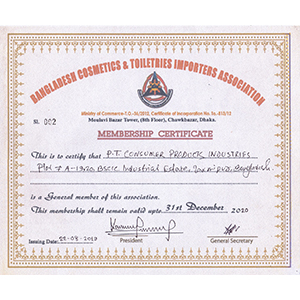 BANGLADESH COSMETICS & TOILETRIES IMPORTERS ASSOCIATION
Ministry of Commerce T.O.
Certificate of Incorporation No.
Sl. 002
Moulavi Bazar Tower, (8th Floor), Chawkbazar, Dhaka.
MEMBERSHIP CERTIFICATE
This is to certify that P.T. CONSUMER PRODUCTS INDUSTRIES
BSCIC Industrial Estate, Bangladesh
is a General member of this association.
This membership shall remain valid upto 31st December 2020
Issuing Date:
President
General Secretary